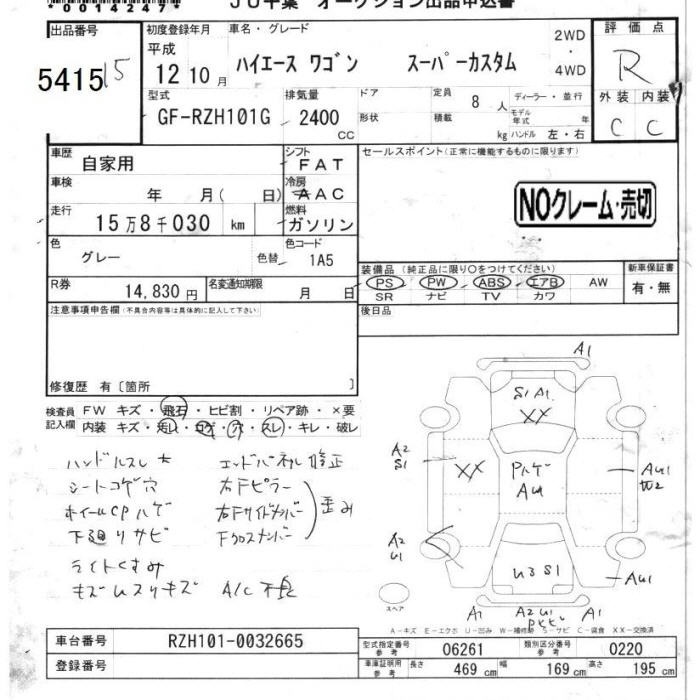 *0014247*
JU千葉 オークション出品申込書
出品番号 初度登録年月 車名・グレード 評価点
平成 2WD
5415 15 12 10月 ハイエース ワゴン スーパーカスタム 4WD R
型式 排気量 ドア 定員 ディーラー・並行 外装 内装
GF-RZH101G 2400 CC 形状 積載 8人 kg モデル年式 年 ハンドル 左・右 C C
車歴 自家用 シフト FAT セールスポイント(正常に機能するものに限ります)
車検 年 月( 日) 冷房 AAC
走行 15万8千030 km 燃料 ガソリン NOクレーム・売切
色 グレー 色替 色コード 1A5
装備品 (純正品に限り○をつけてください) 新車保証書
R券 14,830円 名変通知期限 月 日 PS PW ABS エアB AW 有・無
SR ナビ TV カワ
注意事項申告欄(不具合内容等は具体的に記入して下さい) 後日品
修復歴 有〔箇所 〕
検査員 FW キズ・飛石・ヒビ割・リペア跡・×要
記入欄 内装 キズ・汚レ・コゲ・穴・スレ・キレ・破レ
ハンドルスレ大 エンドパネル修正
シートコゲ穴 右Fピラー
ホイールCPハゲ 右Fサイドメンバー 歪み
下廻りサビ Fクロスメンバー
ライトくすみ
キズUスリキズ A/C不良
A1
S1 A1
XX
A2
S1
XX
Pハゲ
AU1
AU1
W2
A2
U1
U3 S1
AU1
スペア
A1 A2 U1 A1
A-キズ E-エクボ U-凹み W-補修跡 S-サビ C-腐食 XX-交換済
車台番号 RZH101-0032665 型式指定番号 参考 06261 類別区分番号 参考 0220
登録番号 車庫証明用 参考 長さ 469 cm 幅 169 cm 高さ 195 cm